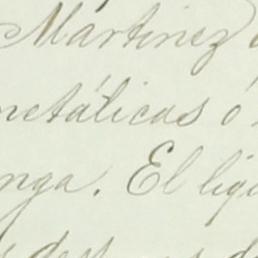 Martinez
metálicas ó
nga. El liqu
des